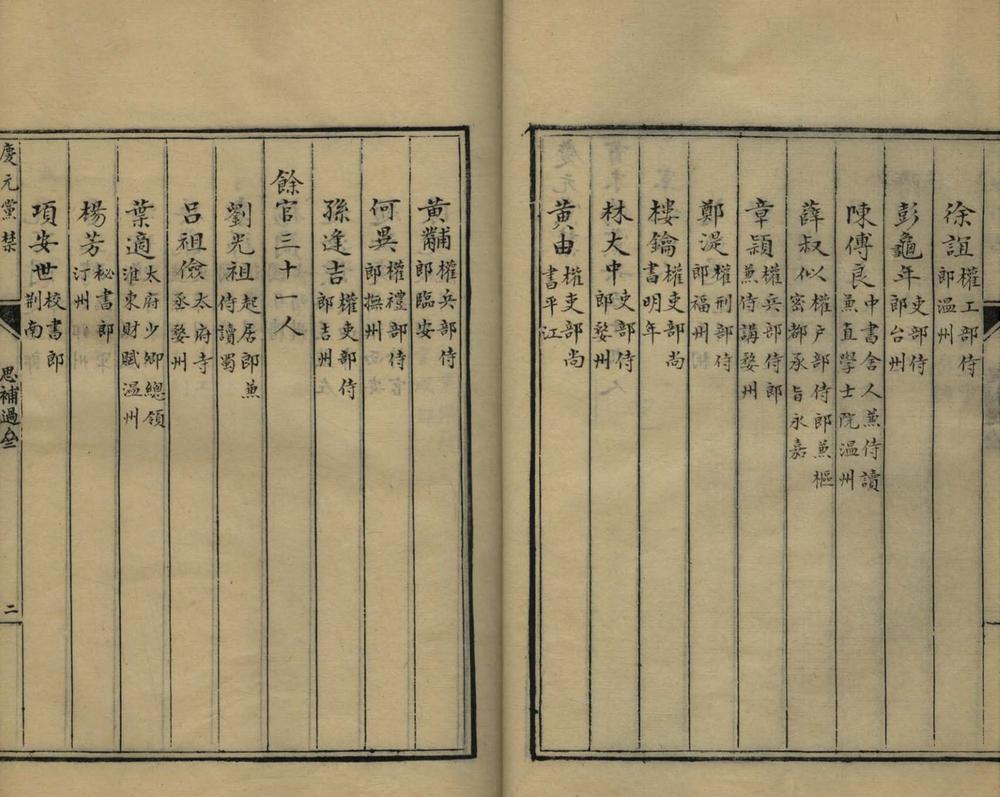 徐誼權工部侍郎溫州
彭龜年吏部侍郎台州
陳傅良中書舍人兼侍讀兼直學士院溫州
薛叔似以權戶部侍郎兼樞密都承旨永嘉
章穎權兵部侍郎兼侍講婺州
鄭湜權刑部侍郎福州
樓鑰權吏部尚書明年
林大中吏部侍郎婺州
黃由權吏部尚書平江
黃黼權兵部侍郎臨安
何異權禮部侍郎撫州
孫逢吉權吏部侍郎吉州
餘官三十一人
劉光祖起居郎兼侍讀蜀
呂祖儉太府寺丞婺州
葉適太府少卿總領淮東財賦溫州
楊芳秘書郎汀州
項安世校書郎荆南
慶元黨禁
思補過
二